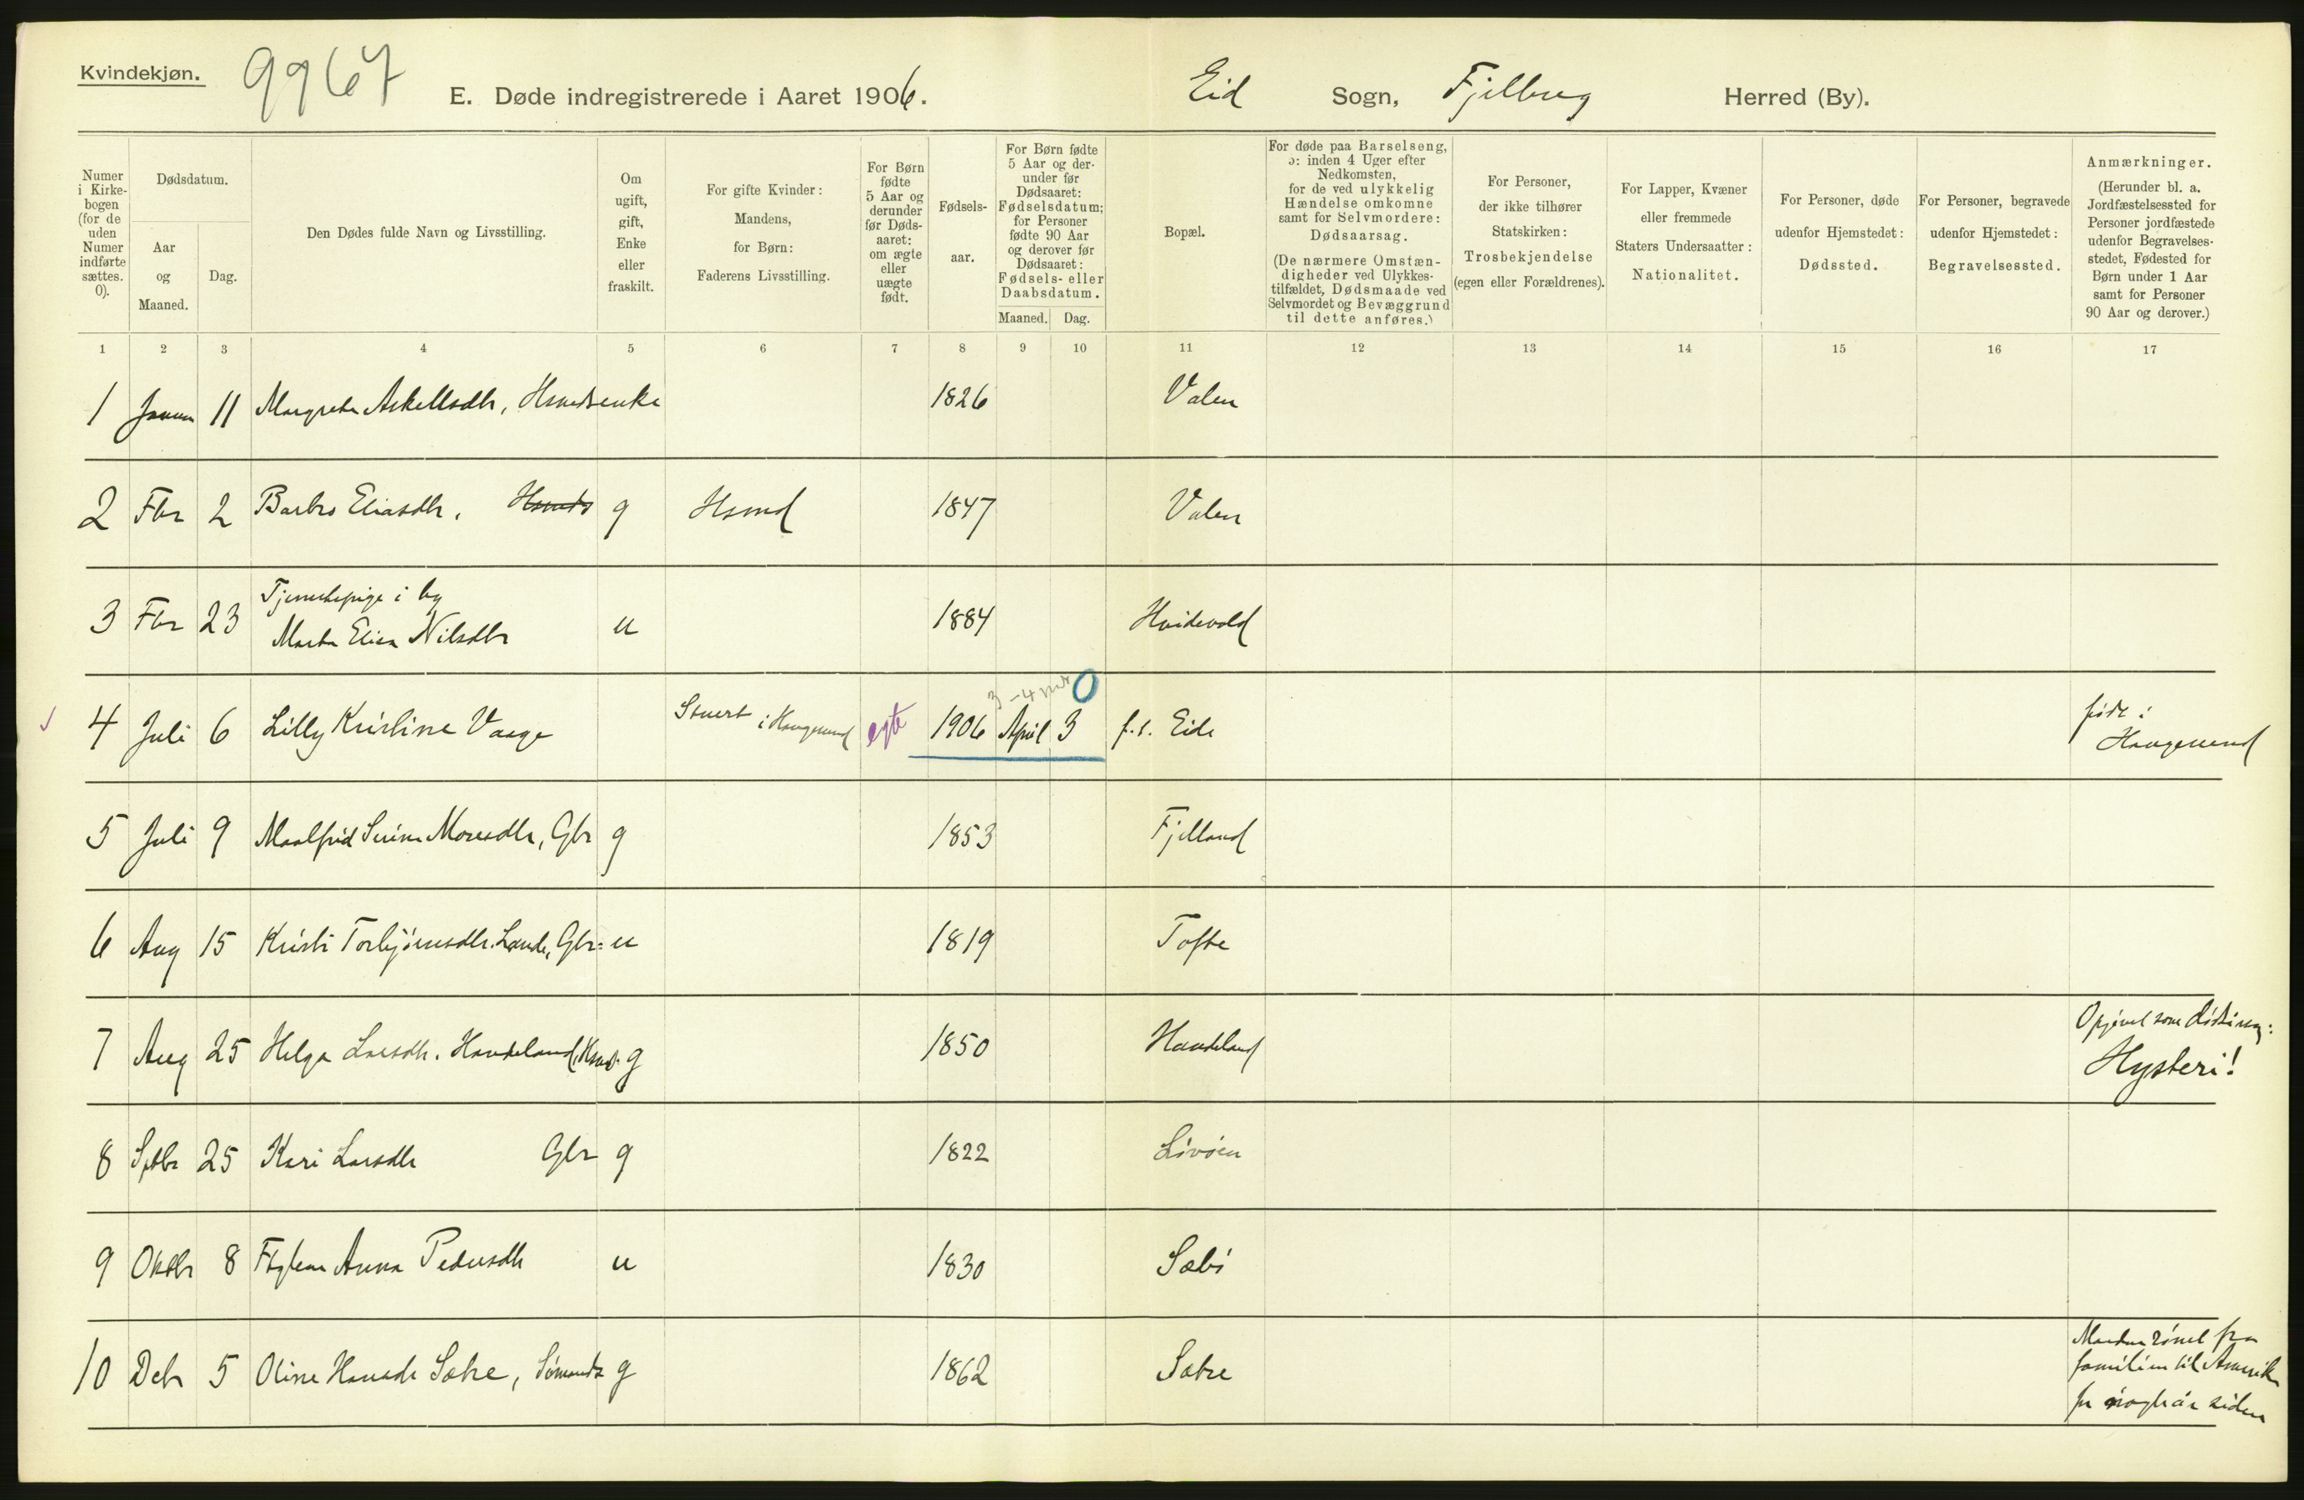 Kvindekjøn.
9967
E. Døde indregistrerede i Aaret 1906.
Eid Sogn, Fjelberg Herred (By).
Numer i Kirkebogen (for de uden Numer indførte sættes. 0).
Dødsdatum.
Aar og Maaned.
Dag.
Den Dødes fulde Navn og Livsstilling.
Om ugift, gift, Enke eller fraskilt.
For gifte Kvinder: Mandens, for Børn: Faderens Livsstilling.
For Børn fødte 5 Aar og derunder før Dødsaaret: om ægte eller uægte født.
Fødselsaar.
For Børn fødte 5 Aar og derunder før Dødsaaret: Fødselsdatum; for Personer fødte 90 Aar og derover før Dødsaaret: Fødsels- eller Daabsdatum.
Maaned. Dag.
Bopæl.
For døde paa Barselseng, ɔ: inden 4 Uger efter Nedkomsten, for de ved ulykkelig Hændelse omkomne samt for Selvmordere: Dødsaarsag. (De nærmere Omstændigheder ved Ulykkestilfældet, Dødsmaade ved Selvmordet og Bevæggrund til dette anføres.)
For Personer, der ikke tilhører Statskirken: Trosbekjendelse (egen eller Forældrenes).
For Lapper, Kvæner eller fremmede Staters Undersaatter: Nationalitet.
For Personer, døde udenfor Hjemstedet: Dødssted.
For Personer, begravede udenfor Hjemstedet: Begravelsessted.
Anmærkninger. (Herunder bl. a. Jordfæstelsessted for Personer jordfæstede udenfor Begravelsesstedet, Fødested for Børn under 1 Aar samt for Personer 90 Aar og derover.)
1 2 3 4 5 6 7 8 9 10 11 12 13 14 15 16 17
1 Januar 11 Margreta Askellsdtr, Hsmdsenke 1826 Valen
2 Fbr 2 Barbro Eliasdtr. Hsmds g Hsmd 1847 Valen
Tjenestepige i by
3 Fbr 23 Marta Elisa Nilsdtr u 1884 Hvidevold
3-4 mdr 0
4 Juli 6 Lilly Kristine Vaage Stuert i Haugesund egte 1906 April 3 f.t. Eide født i
Haugesund
5 Juli 9 Maalfrid Serine Monsdtr, Gbr g 1853 Fjelland
6 Aug 15 Kristi Torbjørnsdtr. Lande, Gbr: u 1819 Tofte
7 Aug 25 Helga Larsdtr. Handeland, Hsmd. g 1850 Handeland Opgivet som dødsaarsag:
Hysteri!
8 Sptbr 25 Kari Larsdtr Gbr g 1822 Løvøen
9 Oktbr 8 Anna Pedersdtr u 1830 Sæbø
10 Debr 5 Oline Hansdtr Sætre, Sømands g 1862 Sætre Manden rømt fra
familien til Amerika
for nogle år siden